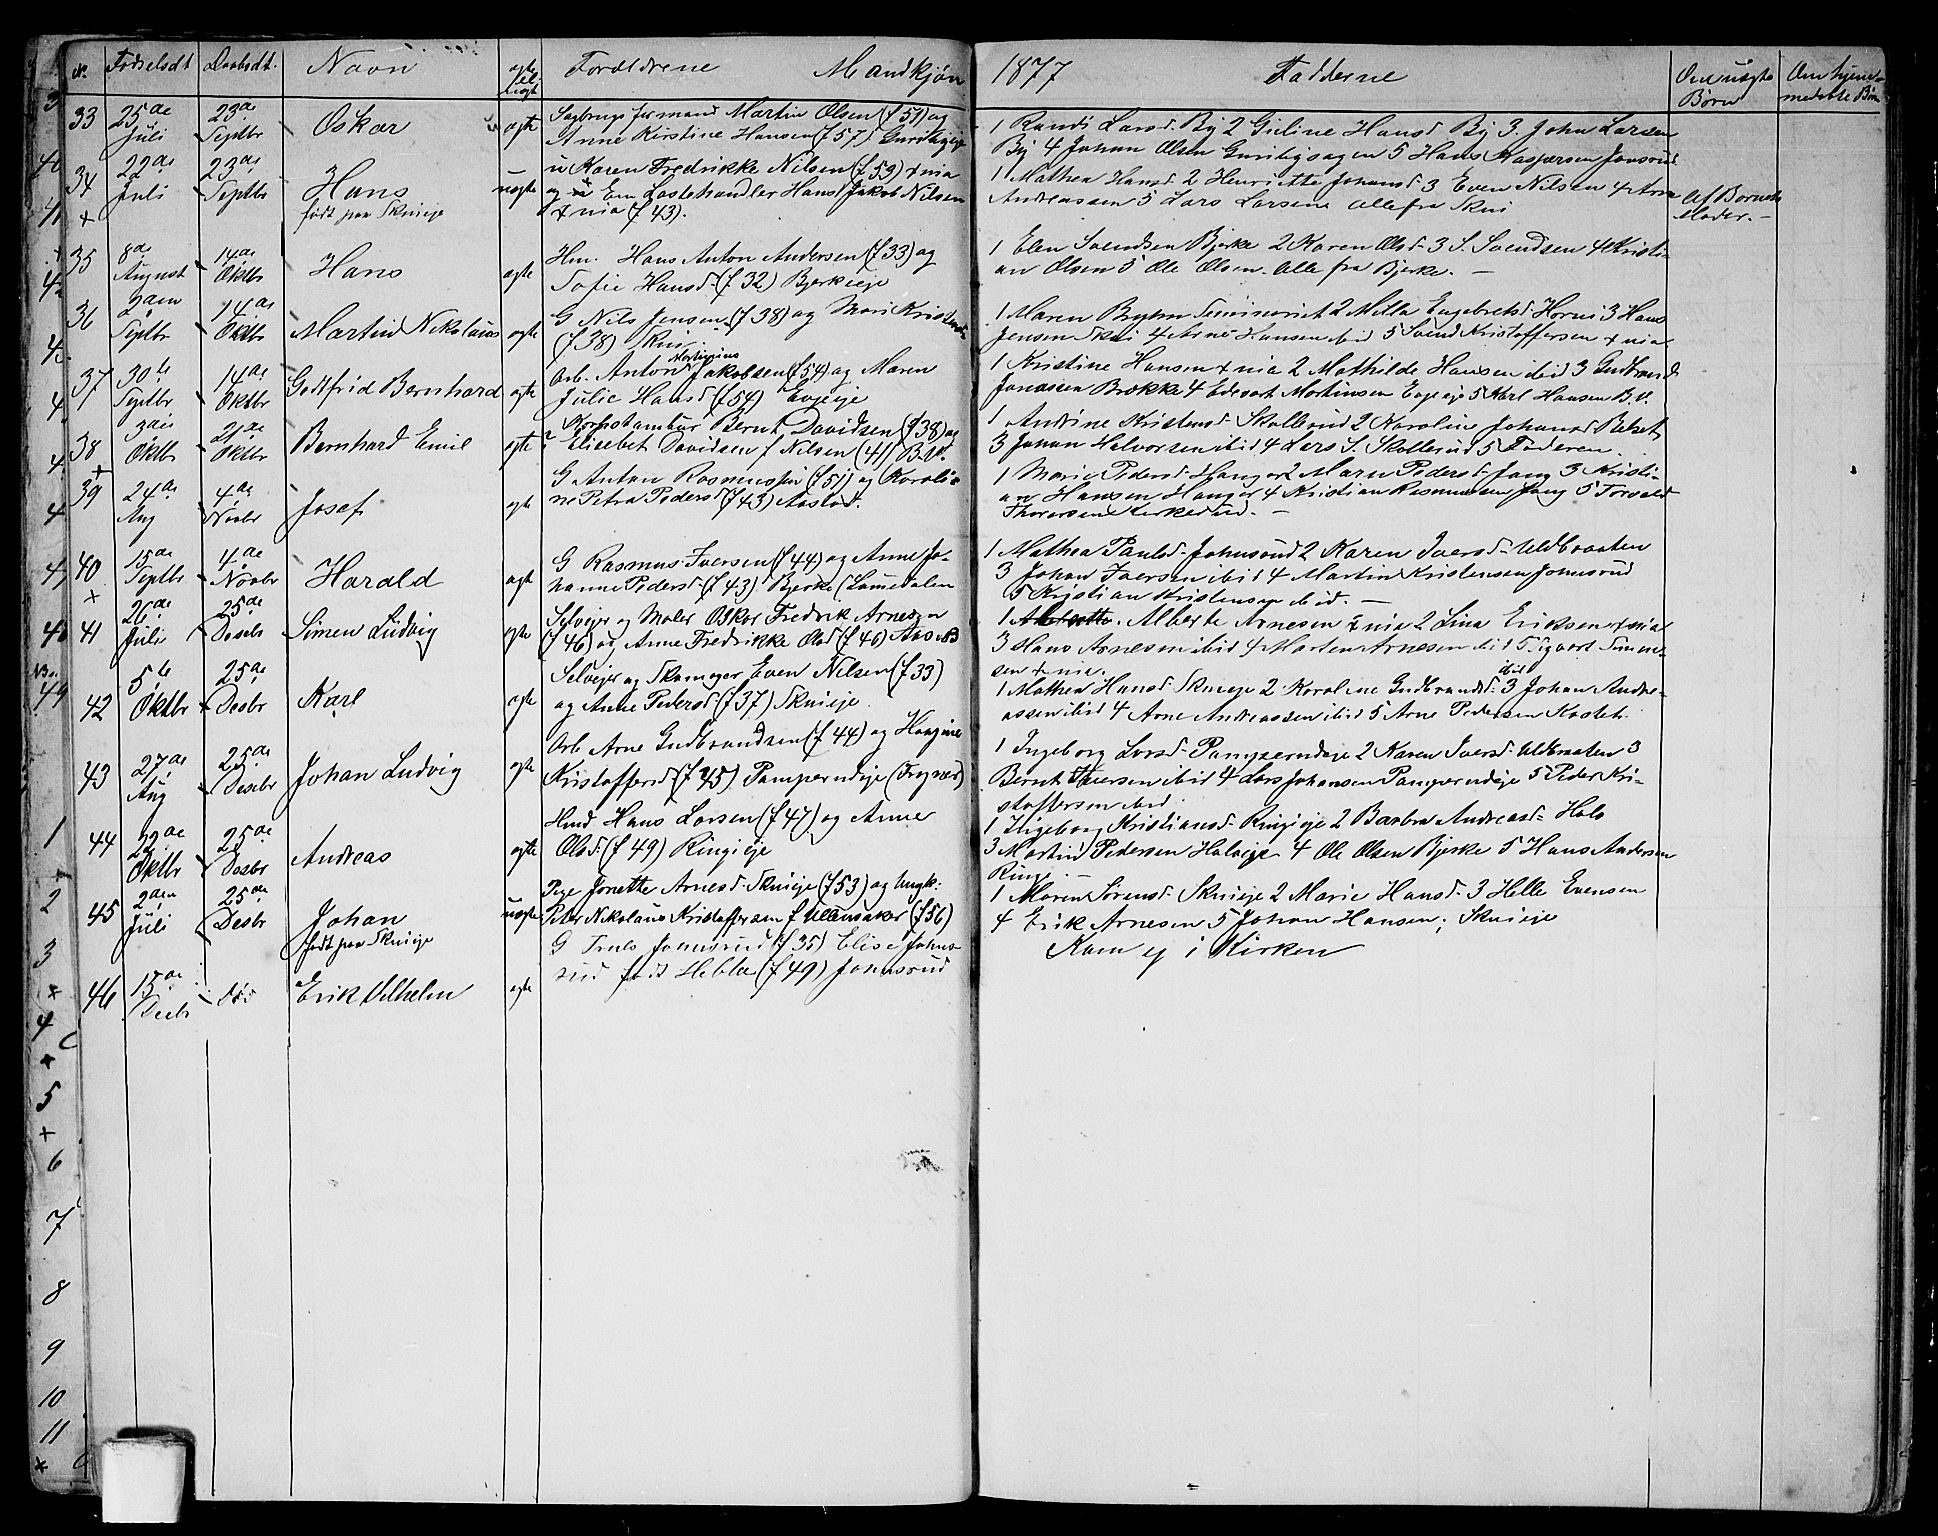 N. Fødselsdt. Daabsdt. Navn ægte el. uægt Forældrene Mandkjøn 1877 Fadderne Om uægte Børn Om hjemmedøbte Børn
33 25de Juli 23de Septbr Oskar ægte
Martin Olsen (f 51) og
Anne Kirstine Hansen (f 57)
1 Randi Larsd. By 2 Gieline Hansd By 3. John Larsen
By 4 Johan Olsen 5 Hans Kaspersen Jonsrud
34 22de Juli 23de Septbr Hans uægte
+ født paa Skuieje
u Karen Fredrikke Nilsen (f 53) + nia
og Em Lastehandler Hans Jakob Nilsen
+ nia (f 43).
1 Mathea Hansd 2 Henriette Johansd 3 Even Nilsen 4 Arne
Andreassen 5 Lars Larsene alle fra Skui
Af Barnets
Moder. -
35 8de August 14de Oktbr Hans ægte
Hm. Hans Anton Andersen (f 33) og
Sofie Hansd (f 32) Bjerkeeje
1 Elen Svendsen Bjerke 2 Karen Olsd 3 S. Svendsen 4 Kristi-
an Olsen 5 Ole Olsen. alle fra Bjerke. -
36 2den Septbr 14de Oktbr Martin Nikolaus ægte
G Nils Jensen (f 38) og Mari Kristensd
(f 38) Skui.
1 Maren Bryhn Seminariet 2 Milla Engebretsd Horni 3 Hans
Jensen Skui 4 Arne Hansen ibid 5 Svend Kristoffersen + nia
37 30te Septbr 14de Oktbr Godtfrid Bernhard ægte
Arb. Anton Jakobsen (f 54) og Maren
Julie Hansd (f 54) Evjeeje
1 Kristine Hansen + nia 2 Mathilde Hansen ibid 3 Gudbrand
Jonassen Brække 4 Edevart Mortinsen Evjeeje 5 Karl Hansen B.V.
38 3die Oktbr 21de Oktbr Bernhard Emil ægte
+
Korpstambur Bernt Davidsen (f 38) og
Elisebet Davidsen f Nilsen (41) B.V.
1 Andrine Kristensd Skollerud 2 Karoline Johansd Rekset
3 Johan Halvorsen ibid 4 Lars S. Skollerud 5 Faderen.
39 24de Aug 4de Novbr Josef ægte
G Anton Rasmussen (f 51) og Karoli-
ne Petra Pedersd (f 43) Aastad.
1 Marie Pedersd Hanger 2 Maren Pedersd Jong 3 Kristi-
an Hansen Hanger 4 Kristian Rasmussen Jong 5 Torvald
Thorersen Kirkerud. -
40 15de Septbr 4de Novbr Harald ægte
+
G Rasmus Iversen (f 44) og Anne Jo-
hanne Pedersd (f 43) Bjerke (Lomedalen
1 Mathea Paulsd Johnsrud 2 Karen Iversd Uldbraaten
3 Johan Iversen ibid 4 Martin Kristensen Johnsrud
5 Kristian Kristensen ibid. -
41 26de Juli 25de Desebr Simen Ludvig ægte
Selvejer og Maler Oskar Fredrik Arnesen
(f 46) og Anne Fredrikke Olsd (f 46) Aas
1 Alberte Arnesen + nia 2 Lina Eriksen + nia
3 Hans Arnesen ibid 4 Morten Arnesen ibid 5 Sigvart Simen-
sen + nia.
42 5te Oktbr 25de Desbr Karl ægte
Selvejer og Skomager Even Nilsen (f 33)
og Anne Pedersd (f 37) Skuieje.
1 Mathea Hansd Skuieje 2 Karoline Gudbrandsd ibid 3 Johan Andre-
assen ibid 4 Arne Andreassen ibid 5 Arne Pedersen
43 27de Aug 25de Desebr Johan Ludvig ægte
Arb Arne Gudbrandsen (f 44) og Haagine
Kristoffersd (f 45) Pamperudeje (Frogner)
1 Ingeborg Larsd Pamperudeje 2 Karen Iversd Uldbraaten 3
Bernt Iversen ibid 4 Lars Johansen Pamperudeje 5 Peder Kri-
stoffersen ibid.
44 22de Oktbr 25de Desbr Andreas ægte
Hmd Hans Larsen (f 47) og Anne
Olsd (f 49) Ringieje
1 Ingeborg Kristiansd Ringieje 2 Barbra Andreasd Halo
3 Martin Pedersen 4 Ole Olsen Bjerke 5 Hans Andersen
Ringi.
45 2den Juli 25de Desbr Johan uægte
født paa Skuieje
Pige Jonette Arnesd Skuieje (f 53) og Ungk.
Peter Nikolaus Kristoffersen f Ullensaker (f 56)
1 Maren Sørensd Skuieje 2 Marie Hansd 3 Helle Evensen
4 Erik Arnesen 5 Johan Hansen; Skuieje
46 15de Decbr død Erik Vilhelm ægte
G Jonsrud (f 35) Elise Johns-
rud født (f 49) Jonnsrud
Kom ej i Kirken
1
2
3
4
5
6
7
8
9
10
11